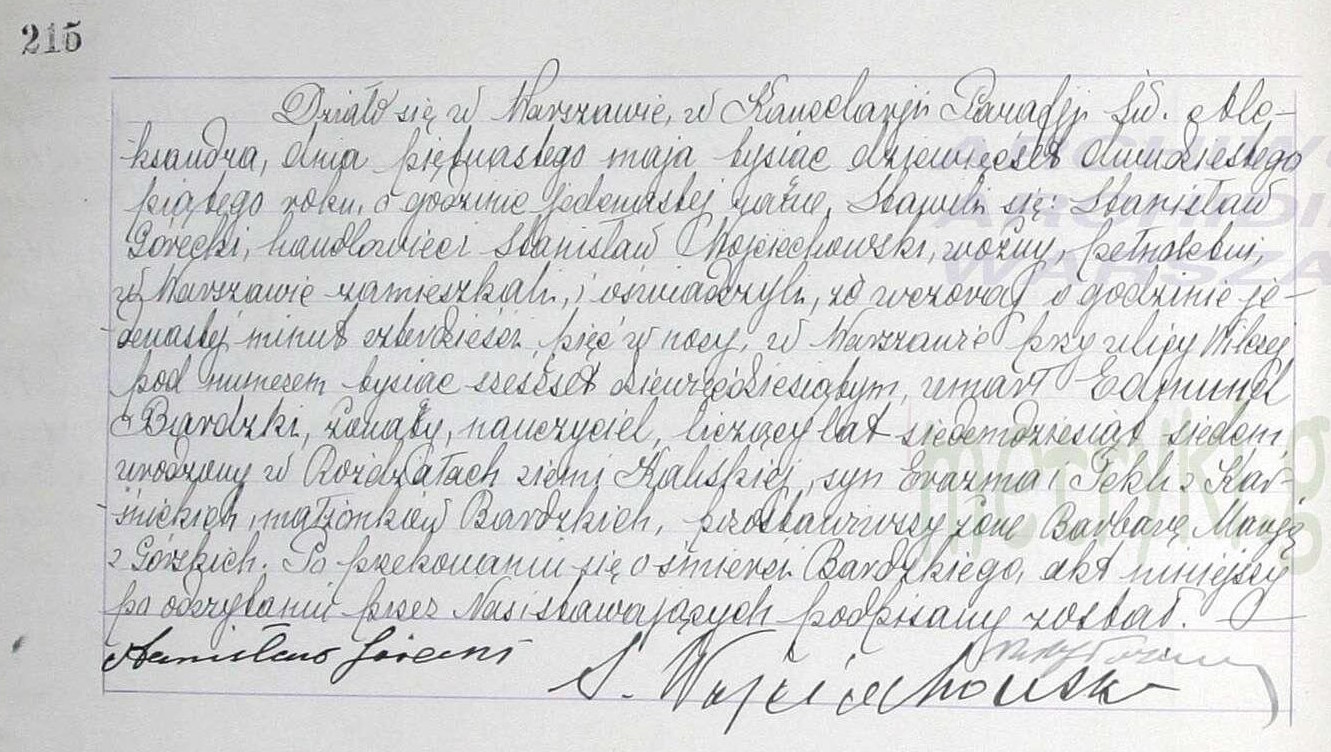 215
Działo się w Warszawie, w Kancelaryi Parafji Św. Ale-
ksandra, dnia piętnastego maja tysiąc dziewięćset dwudziestego
piątego roku, o godzinie jedenastej ranne, Stawili się: Stanisław
Górecki, handlowiec i Stanisław Wojciechowski, woźny, pełnoletni,
w Warszawie zamieszkali, i oświadczyli, że wczoraj o godzinie je-
denastej minut czterdzieści pięć w nocy, w Warszawie przy ulicy Wilczej
pod numerem tysiąc sześćset dziewięćdziesiątym, umarł Edmund
Bardzki, żonaty, nauczyciel, liczący lat siedemdziesiąt siedem,
urodzony w Rożdżałach ziemi Kaliskiej, syn Erazma i Tekli z Kar-
śnickich, małżonków Bardzkich, pozostawiwszy żonę Barbarę Marję
z Górskich. Po przekonaniu się o śmierci Bardzkiego, akt niniejszy
po odczytaniu przez Nas i stawających podpisany został.
Stanisław Górecki
S. Wojciechowski
ARCHIWUM
ARCHIDI
WARSZA
metryki.g